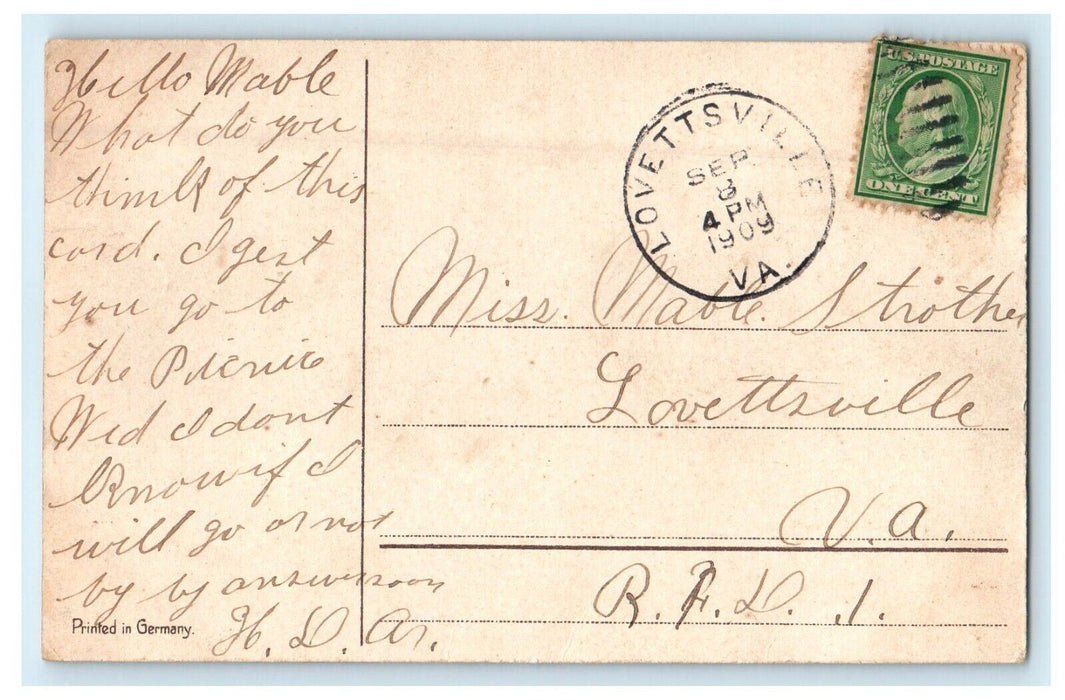 Hello Mable
What do you
think of this
card. I gest
you go to
the Picnic
Wed I dont
Know if I
will go or not
by by answer soon
H. D. Ar.
Printed in Germany.
U.S. POSTAGE
ONE CENT
LOVETTSVILLE
SEP
8
4 PM
1909
VA.
Miss. Mable. Strother
Lovettsville
Va.
R.F.D. 1.